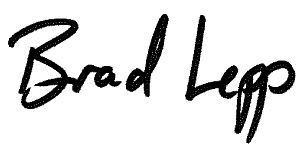 Brad Lepp